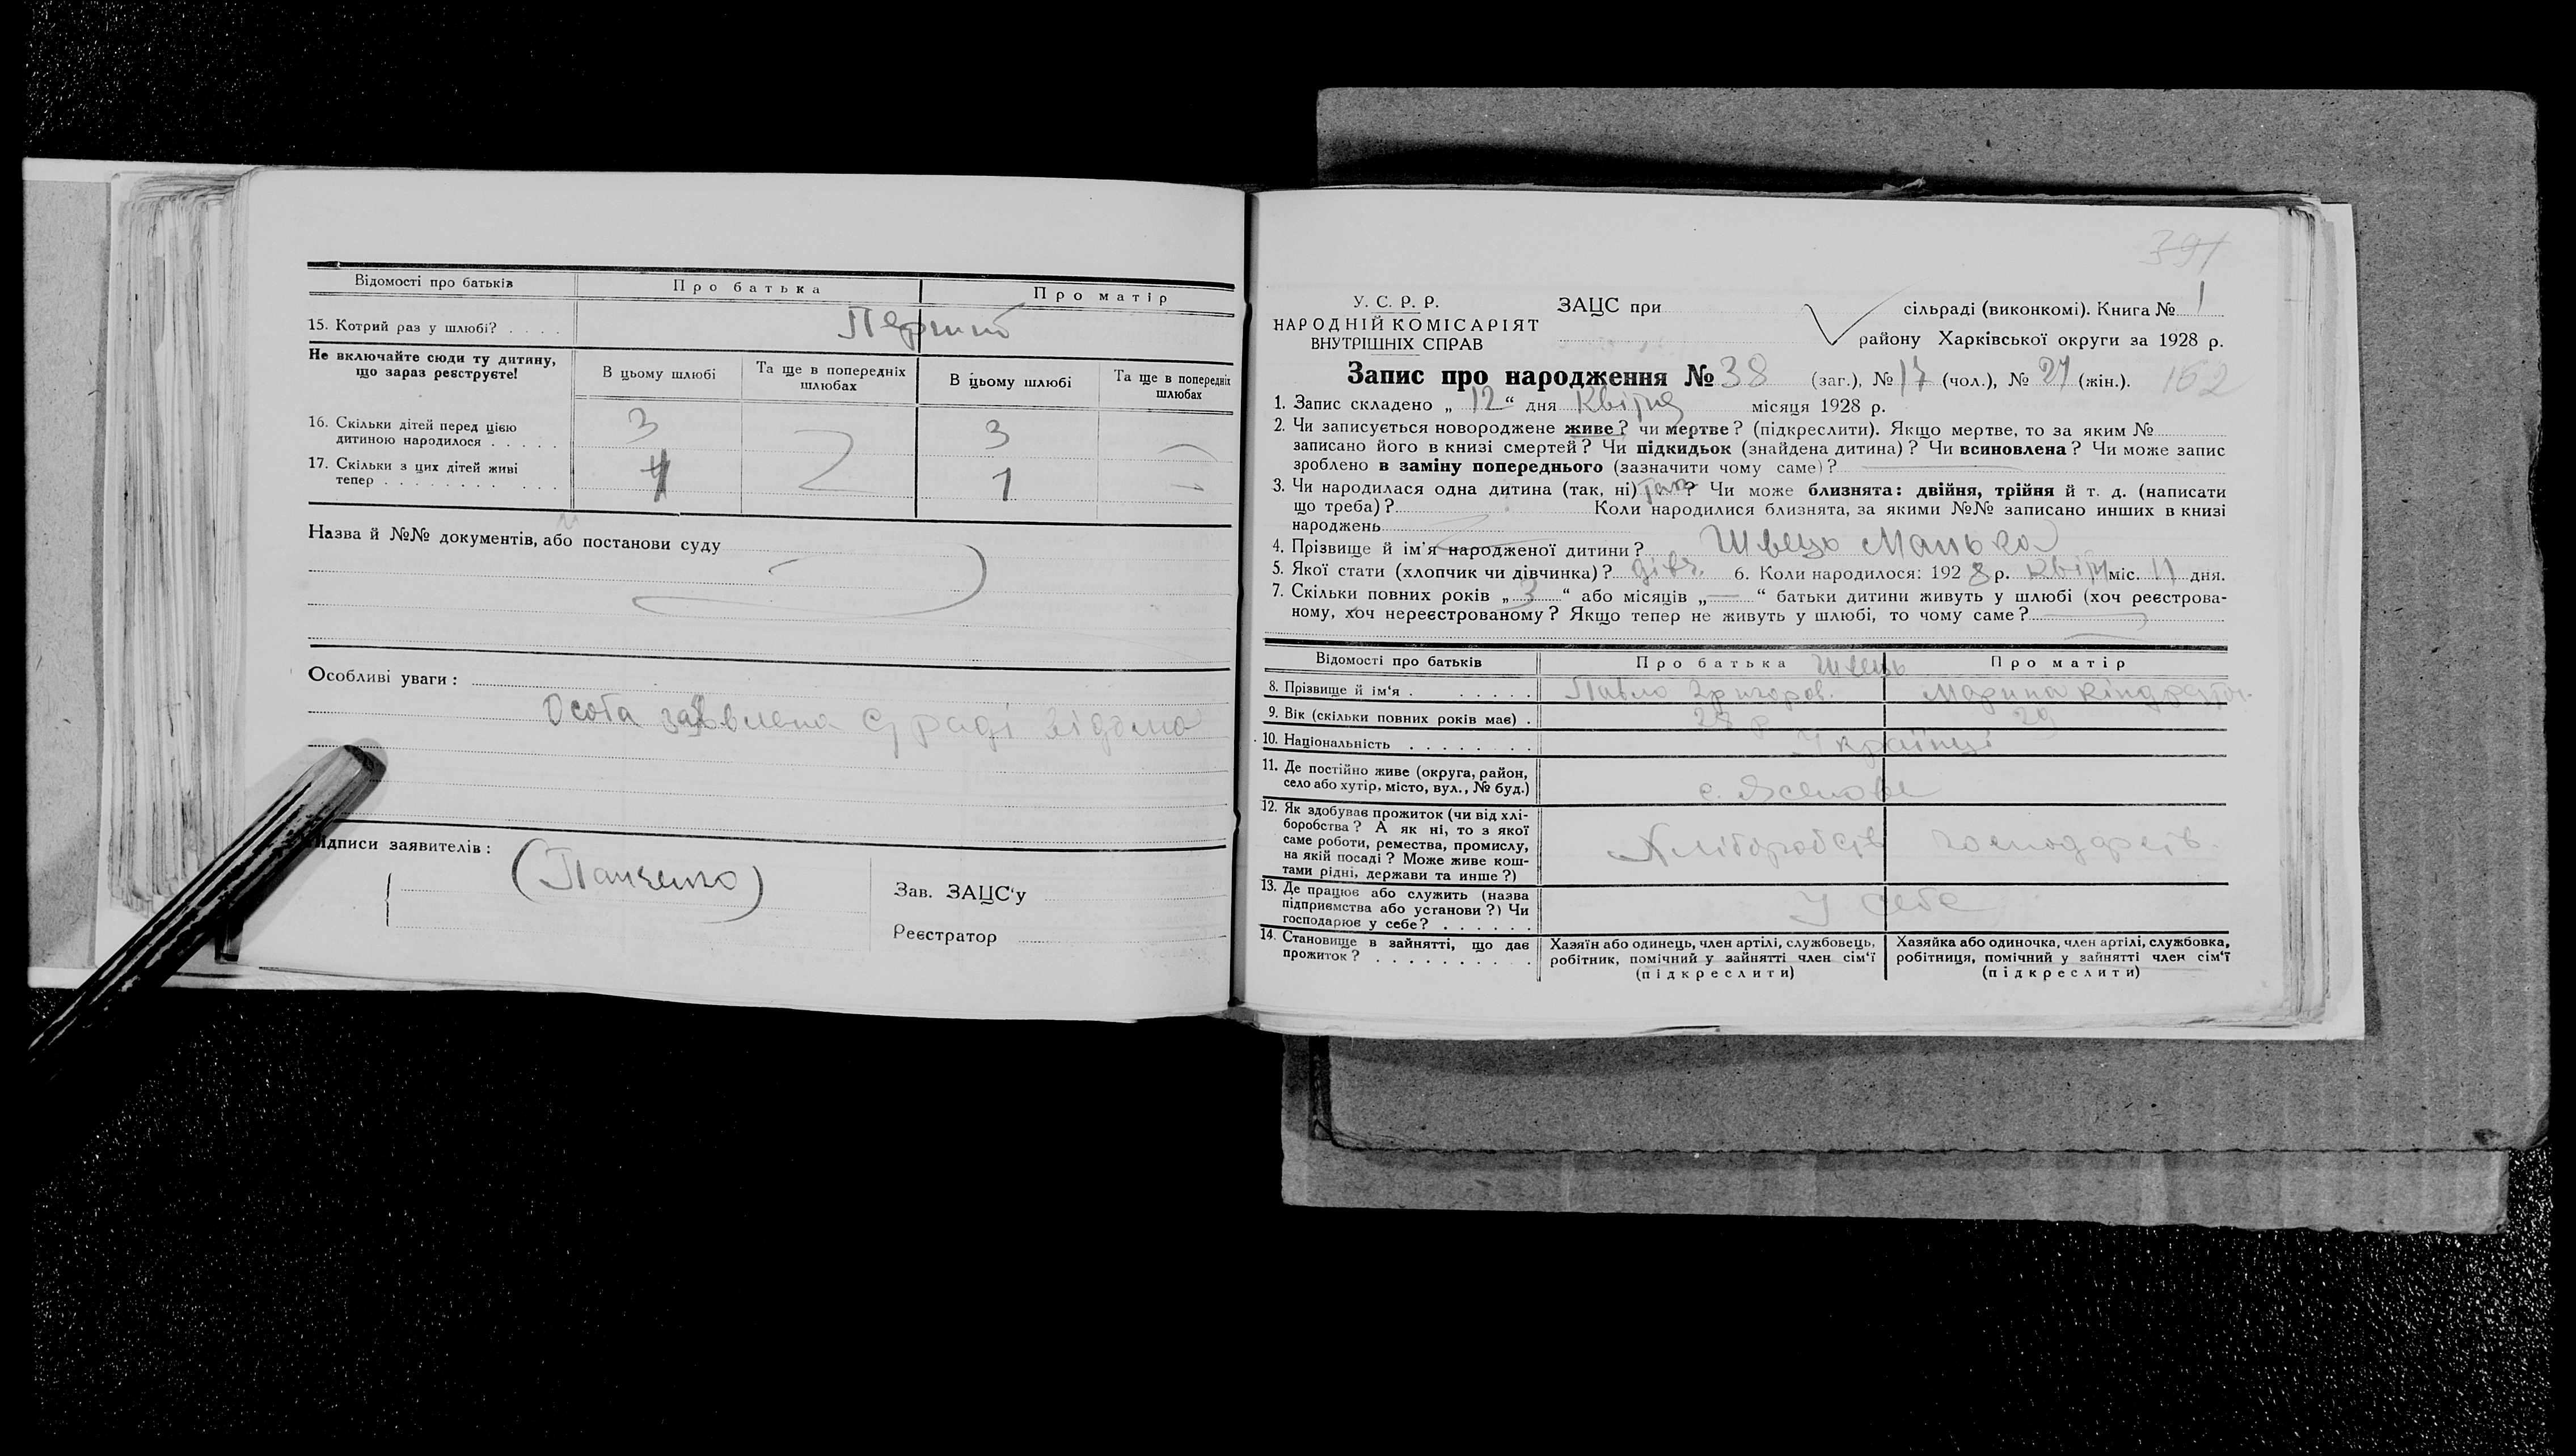 Відомості про батьків
Про батька
Про матір
15. Котрий раз у шлюбі? . . . .
Перший
Не включайте сюди ту дитину,
що зараз реєструєте!
В цьому шлюбі
Та ще в попередніх
шлюбах
В цьому шлюбі
Та ще в попередніх
шлюбах
16. Скільки дітей перед цією
дитиною народилося . . . . .
3
3
17. Скільки з цих дітей живі
тепер . . . . . . . . . . .
1
Назва й №№ документів, або постанови суду
Особливі уваги :
Особа заявлена сраді відома
Підписи заявителів :
(Панченко)
Зав. ЗАЦС'у
Реєстратор
391
У. С. Р. Р.
НАРОДНІЙ КОМІСАРІЯТ
ВНУТРІШНІХ СПРАВ
ЗАЦС при
сільраді (виконкомі). Книга № 1
району Харківської округи за 1928 р.
Запис про народження № 38 (заг.), № 17 (чол.), № 21 (жін.). 162
1. Запис складено „ 12 “ дня Квітня місяця 1928 р.
2. Чи записується новороджене живе? чи мертве? (підкреслити). Якщо мертве, то за яким №
записано його в книзі смертей? Чи підкидьок (знайдена дитина)? Чи всиновлена? Чи може запис
зроблено в заміну попереднього (зазначити чому саме)?
3. Чи народилася одна дитина (так, ні) так? Чи може близнята: двійня, трійня й т. д. (написати
що треба)? Коли народилися близнята, за якими №№ записано инших в книзі
народжень
4. Прізвище й ім'я народженої дитини? Швець Манька
5. Якої стати (хлопчик чи дівчинка)? дівч. 6. Коли народилося: 1928 р. квітн міс. 11 дня.
7. Скільки повних років „ 3 “ або місяців „ — “ батьки дитини живуть у шлюбі (хоч реєстрова-
ному, хоч нереєстрованому? Якщо тепер не живуть у шлюбі, то чому саме?
Відомості про батьків
Про батька
Швець
Про матір
8. Прізвище й ім'я . . . . . .
Павло Григоров.
Марина Кіндратов.
9. Вік (скільки повних років має) .
28 р
29
10. Національність . . . . . . . .
Українці
11. Де постійно живе (округа, район,
село або хутір, місто, вул., № буд.)
с. Ясенове
12. Як здобуває прожиток (чи від хлі-
боробства? А як ні, то з якої
саме роботи, ремества, промислу,
на якій посаді? Може живе кош-
тами рідні, держави та инше?)
Хліборобств
господарств.
13. Де працює або служить (назва
підприємства або установи?) Чи
господарює у себе? . . . . . .
У себе
14. Становище в зайнятті, що дає
прожиток? . . . . . . . . . .
Хазяїн або одинець, член артілі, службовець,
робітник, помічний у зайнятті член сім'ї
(підкреслити)
Хазяйка або одиночка, член артілі, службовка,
робітниця, помічний у зайнятті член сім'ї
(підкреслити)